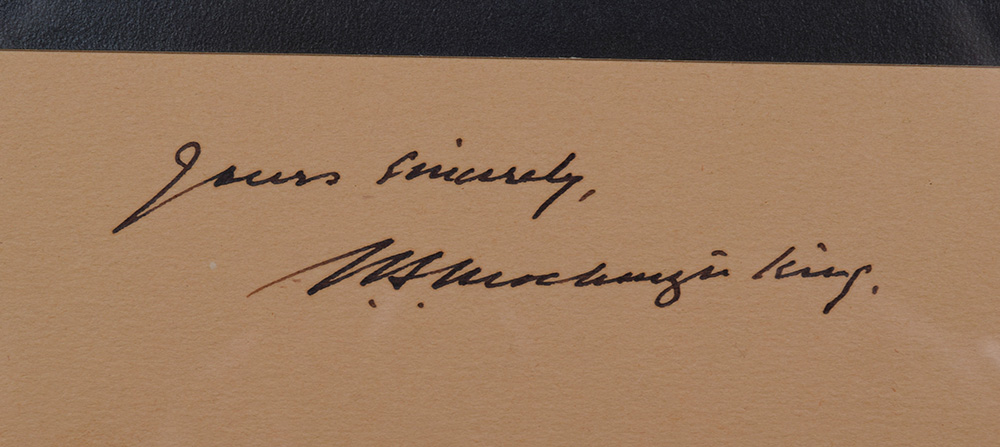 Yours sincerely,
W. L. Mackenzie King.